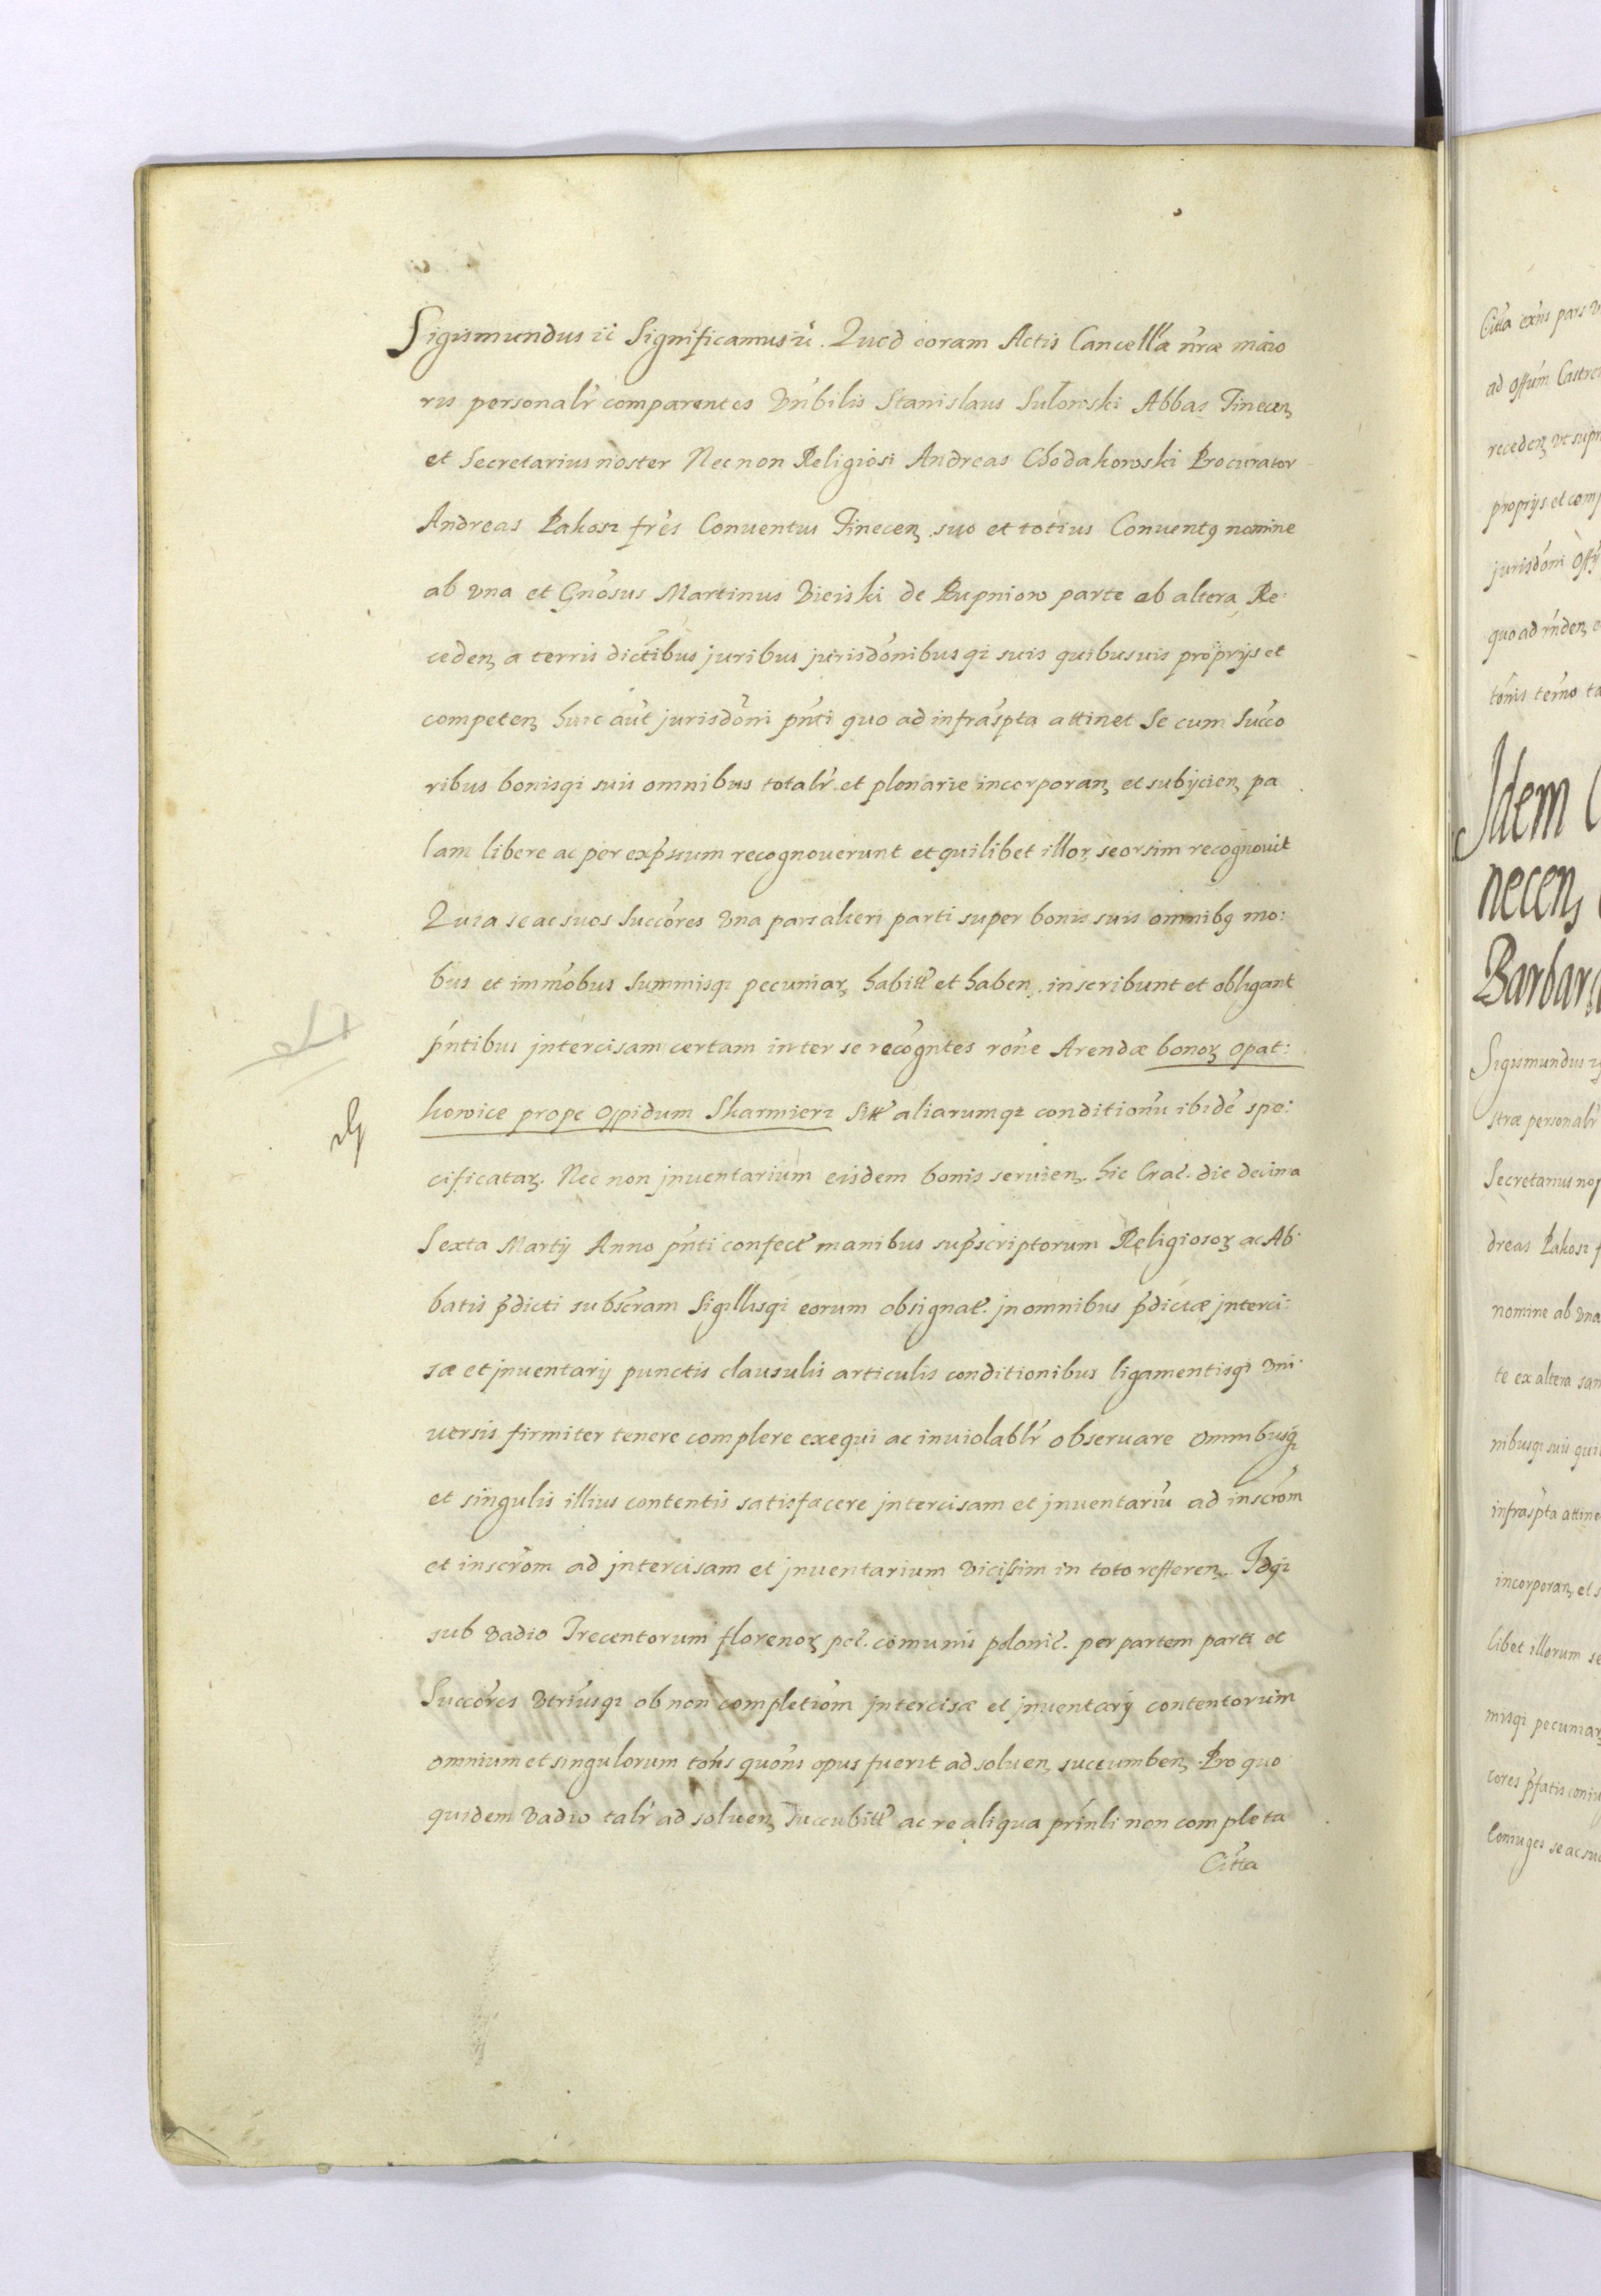 Sigismundus ic Significamus ic. Quod coram Actis Cancellã nræ maio
ris personalr comparentes Vnbilis Stanislaus Sulowski Abbas Tinecen
et Secretarius noster Nec non Religiosi Andreas Chodakowski Procurator
Andreas Pakosz frēs Conuentus Tinecen suo et totius Conuentq nomine
ab vna et Gnosus Martinus Vieiski de Rupniow parte ab altera Re:
ceden a terris dictibus juribus jurisdonibusqz suis quibusuis proprijs et
competen huic aūt jurisdoni pnti quo ad infraspta attinet Se cum Succo
ribus bonisqz suis omnibus totalr et plenarie incorporan et subijcien pa
lam libere ac per expssum recognouerunt et quilibet illor seorsim recognouit
Quia se ac suos Succores Vna pars alteri parti super bonis suis omnibq mo:
bus et immobus Summisqz pecuniar habitt et haben inscribunt et obligant
pntibus jntercisam certam inter se recogntes rone Arendæ bonor Opat:
kowice prope Oppidum Skarmierz Sitt aliarumqz conditionu ibide spe:
cificatar. Nec non jnuentarium eisdem bonis seruien. hic Crac. die decima
Sexta Martij Anno pnti confect manibus supscriptorum Religiosor ac Ab
batis pdicti subscram Sigillisqz eorum obsignat. jn omnibus pdictæ jnterci:
sæ et jnuentarij punctis clausulis articulis conditionibus ligamentisqz vni
uersis firmiter tenere complere exequi ac inuiolablr obseruare Omnibusq
et singulis illius contentis satisfacere jntercisam et jnuentariu ad inscrom
et inscrom ad jntercisam et jnuentarium vicissim in toto refferen. Idqz
sub vadio Trecentorum florenor pec. comunis polonic. per partem parti et
Succores vtriusqz ob non completiom jntercisæ et jnuentarij contentorum
omnium et singulorum tons quons opus fuerit ad soluen succumben Pro quo
quidem vadio talr ad soluen succubitt ac re aliqua prinli non completa
Citta
Citta exns pars
ad Offum Castren
receden vt supr
proprijs et comp
jurisdoni Offij
quo ad rnden
tonis terno ta
Idem
necen
Barbar
Sigismundus
stræ personalr
Secretarius no
dreas Pakosz f
nomine ab vna
te ex altera san
nibusqz suis qui
infraspta attine
incorporan et s
libet illorum se
misqz pecuniar
cores pfatis coniu
Coniuges se ac suo